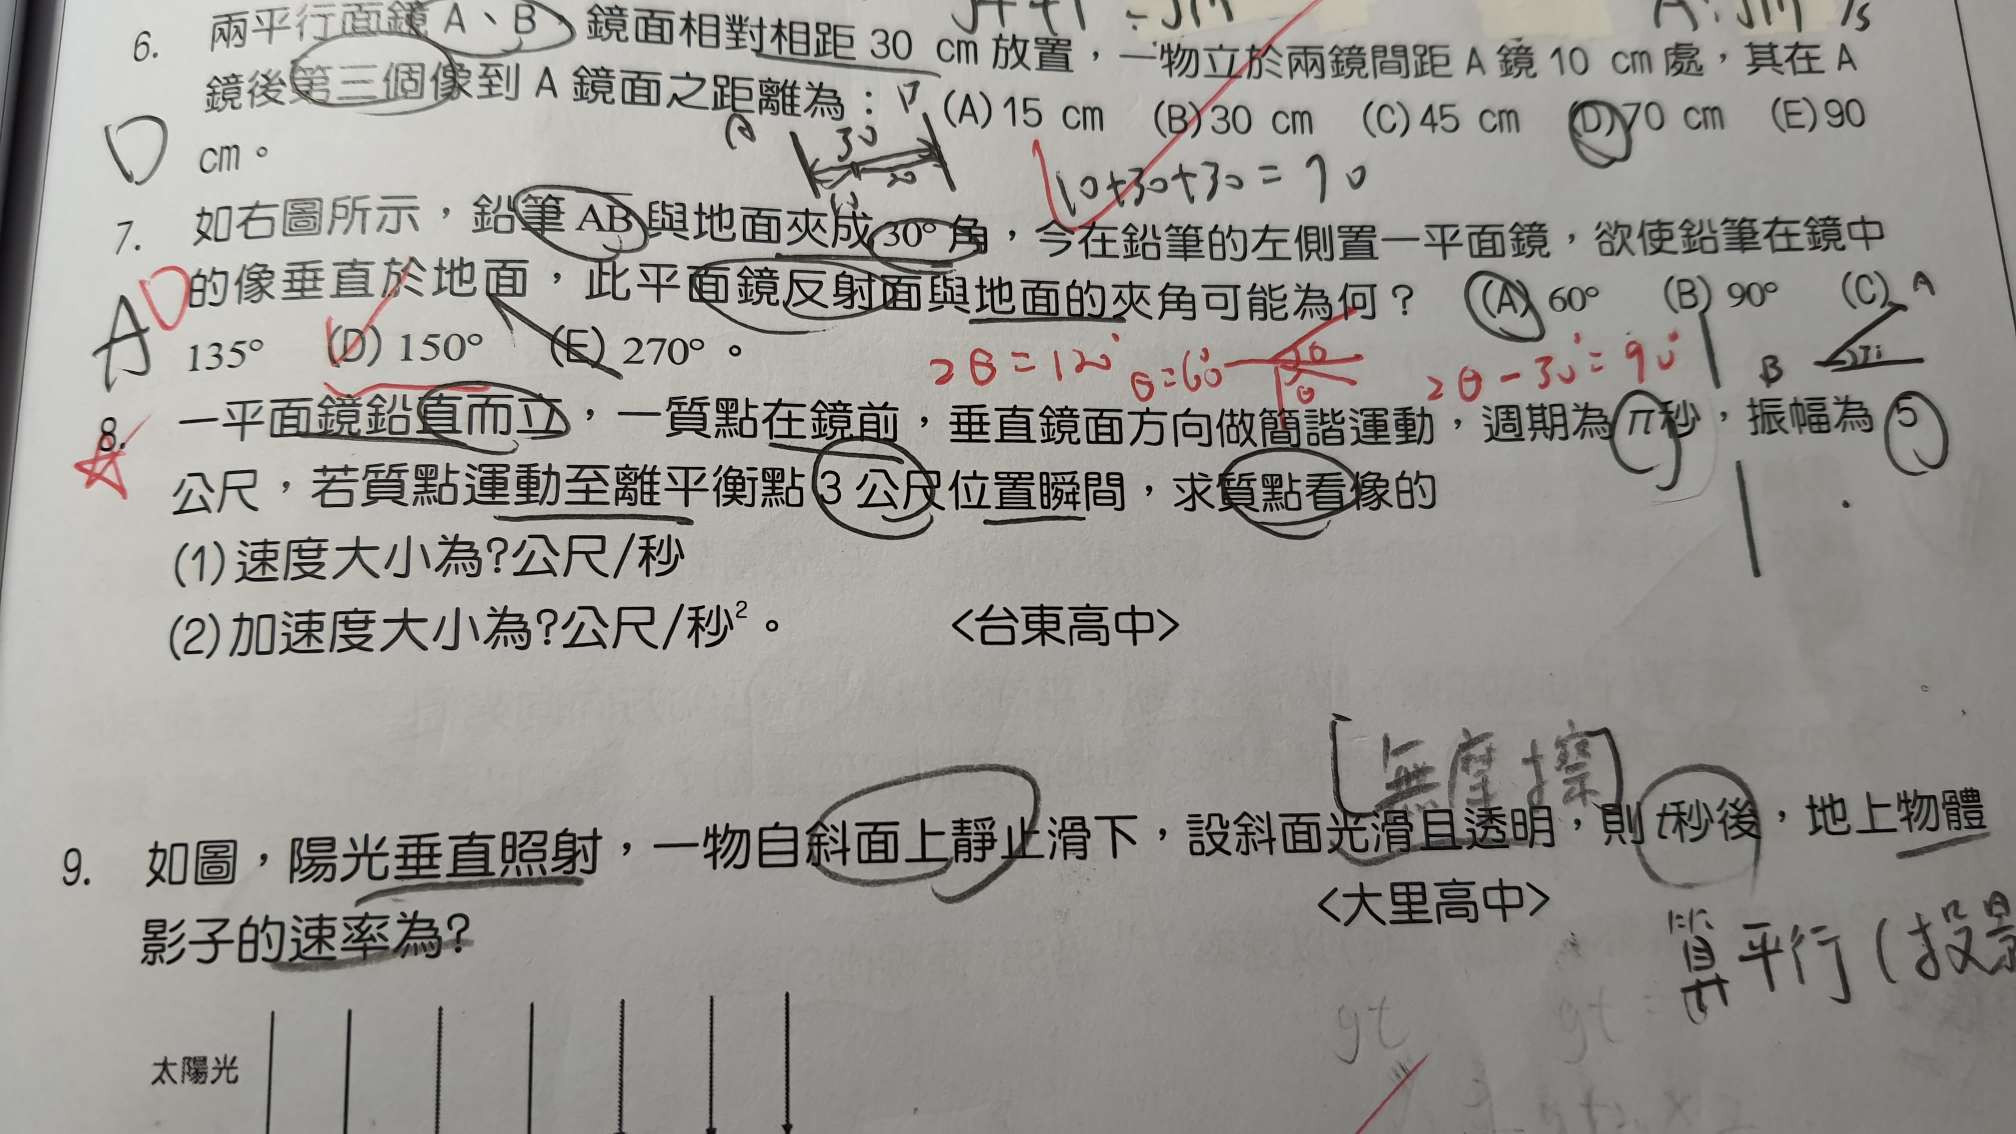 6. 兩平行面鏡 A、B,鏡面相對相距 30 cm 放置,一物立於兩鏡間距 A 鏡 10 cm 處,其在 A
鏡後第三個像到 A 鏡面之距離為: (A) 15 cm (B) 30 cm (C) 45 cm (D) 70 cm (E) 90
cm。
D
30
10+30+30=70
7. 如右圖所示,鉛筆 AB 與地面夾成 30° 角,今在鉛筆的左側置一平面鏡,欲使鉛筆在鏡中
的像垂直於地面,此平面鏡反射面與地面的夾角可能為何? (A) 60° (B) 90° (C)
135° (D) 150° (E) 270°。
A D
2θ=120° θ=60° 2θ-30°=90°
A
B
8. 一平面鏡鉛直而立,一質點在鏡前,垂直鏡面方向做簡諧運動,週期為 π 秒,振幅為 5
公尺,若質點運動至離平衡點 3 公尺位置瞬間,求質點看像的
(1) 速度大小為?公尺/秒
(2) 加速度大小為?公尺/秒²。 <台東高中>
[無摩擦]
9. 如圖,陽光垂直照射,一物自斜面上靜止滑下,設斜面光滑且透明,則 t 秒後,地上物體
影子的速率為? <大里高中>
算平行(投影
gt gt
太陽光